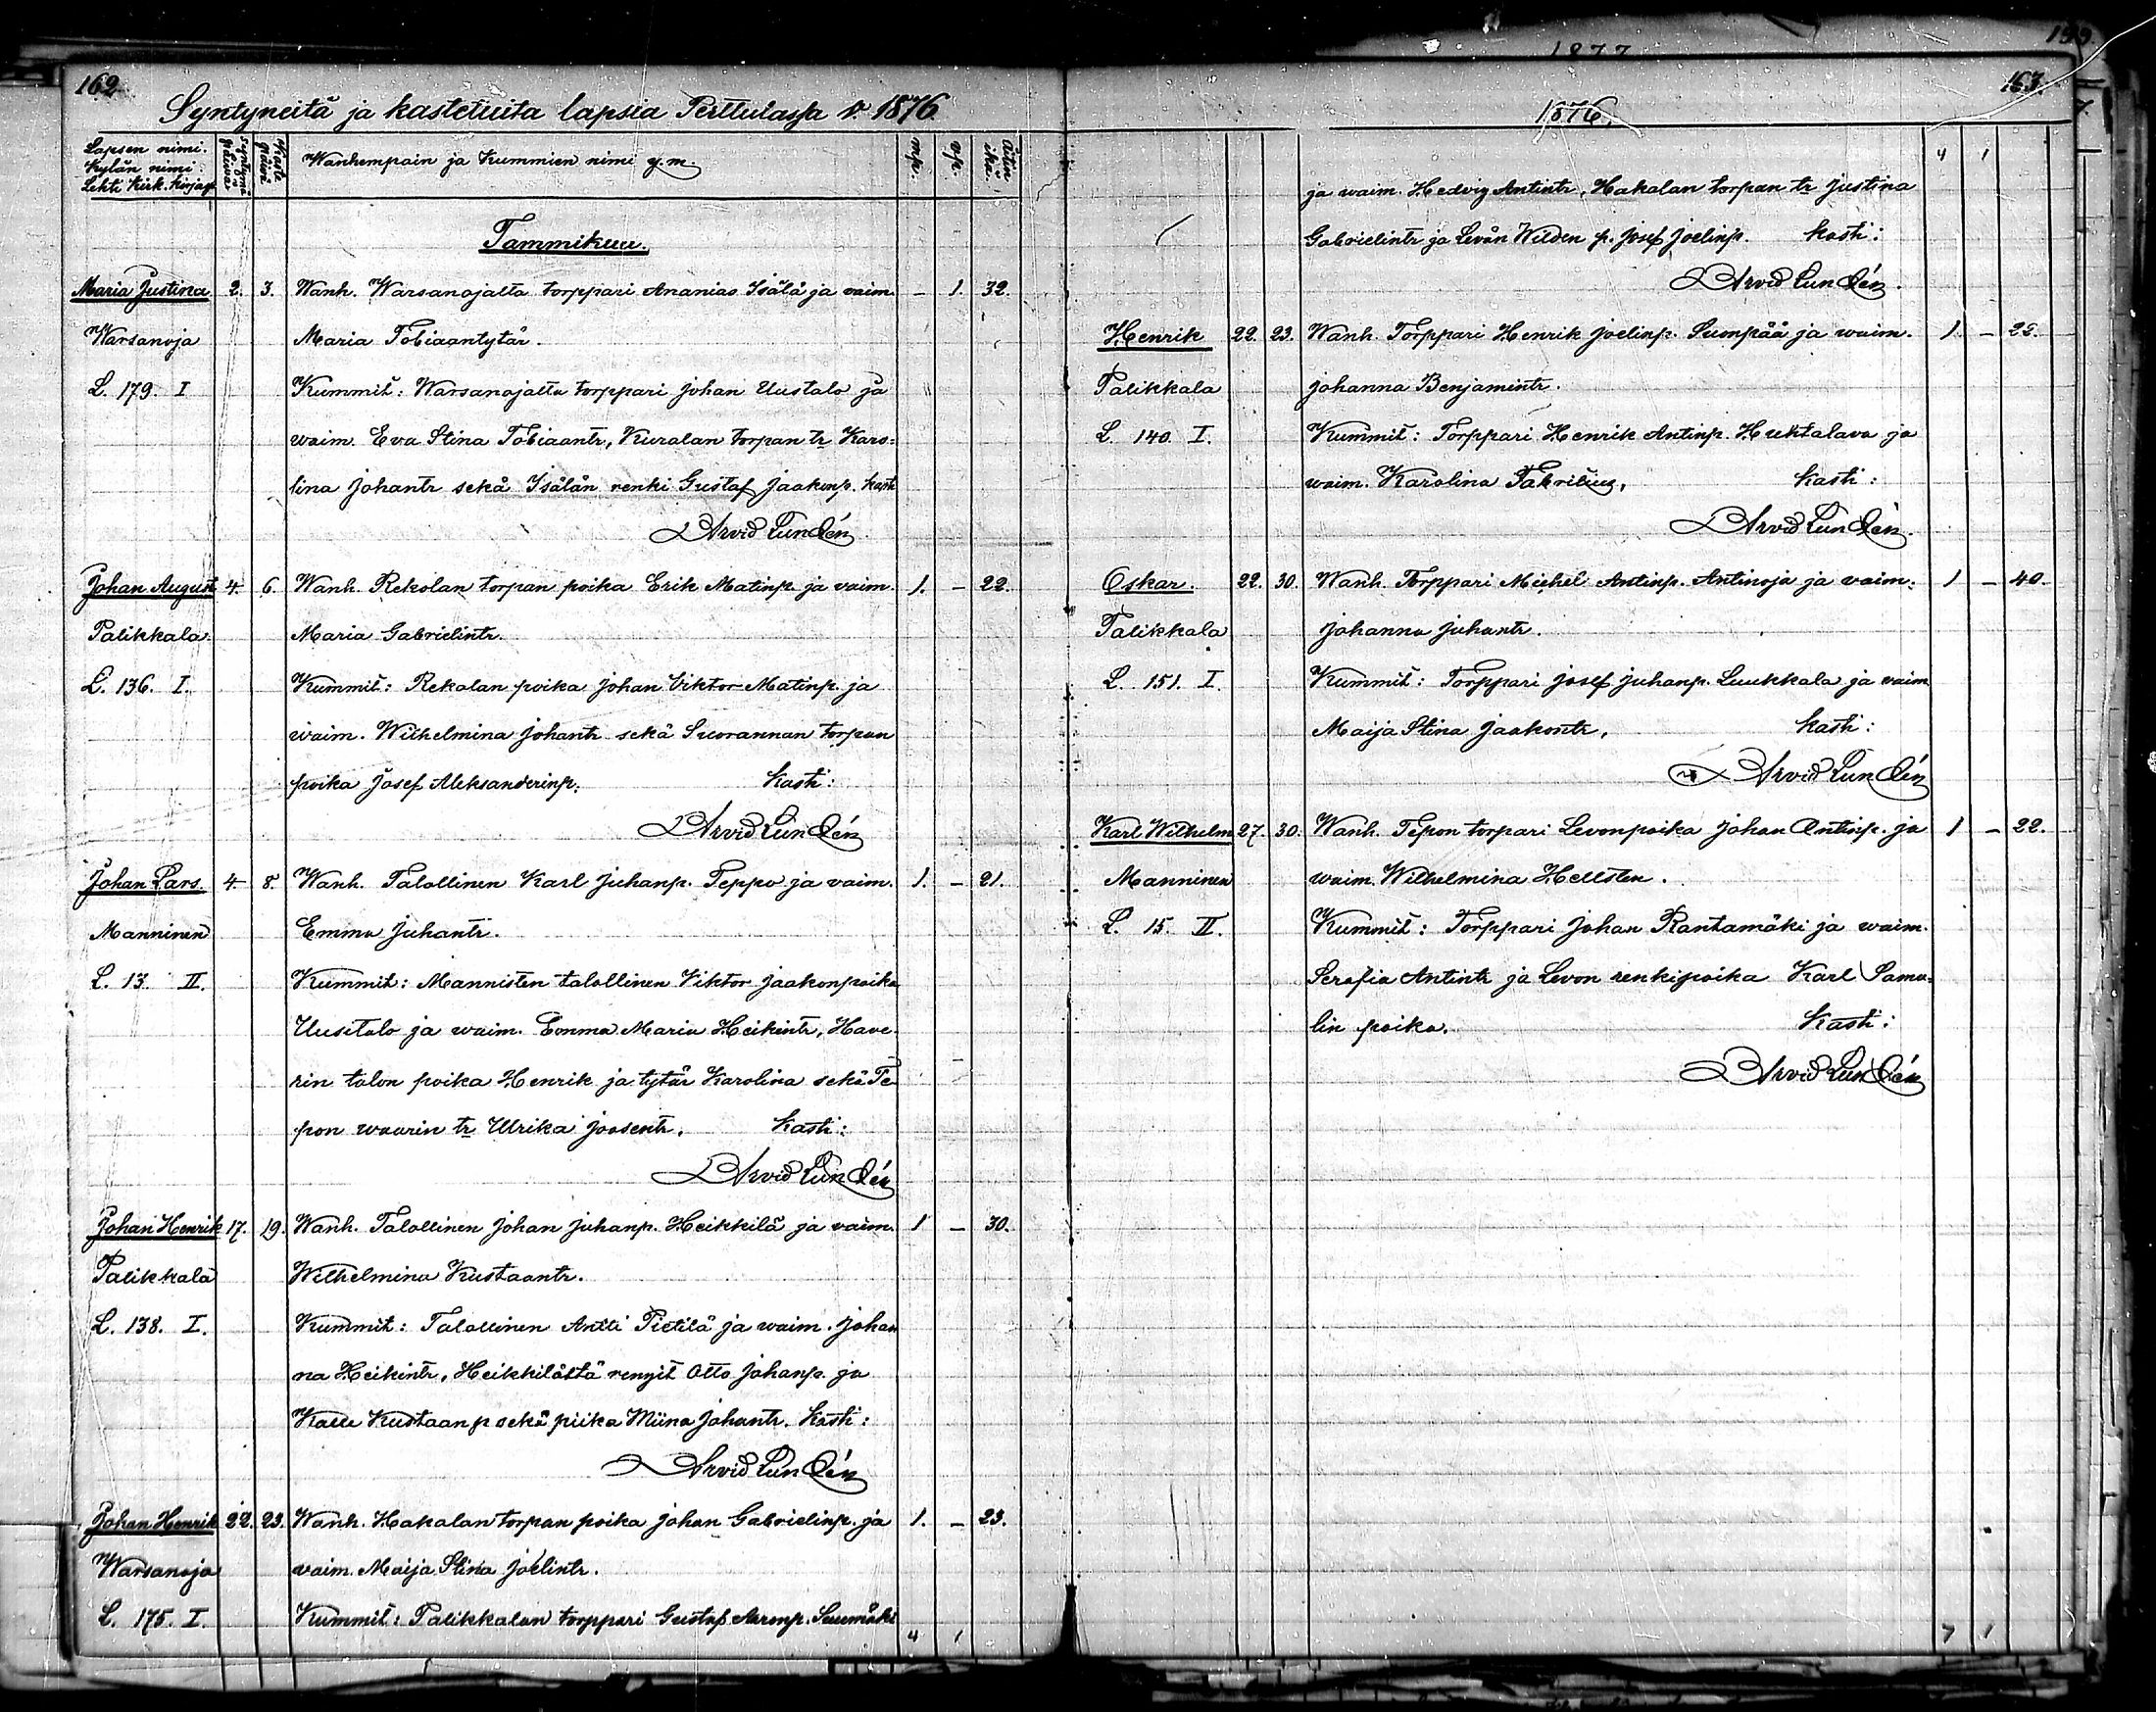 162
Syntyneitä ja kastetuita lapsia Perttulassa v. 1876
Lapsen nimi. Kylän nimi. Lehti Kirk. kirjass. Syntymä päivä Kaste päivä Wanhempain ja Kummien nimi y.m. mp. vp. Äitin ikä.
Tammikuu.
Maria Justina 2. 3. Wanh. Warsanojalta torppari Ananias Isälä ja vaim. – 1. 32.
Warsanoja Maria Tobiaantytär.
L. 179. I Kummit: Warsanojalta torppari Johan Uustalo ja
waim. Eva Stina Tobiaantr, Kuralan torpan tr Karo-
lina Johantr sekä Isälän renki Gustaf Jaakonp. Kasti
Arvid Lundén
Johan August 4. 6. Wanh. Rekolan torpan poika Erik Matinp. ja vaim. 1. – 22.
Palikkala. Maria Gabrielintr.
L. 136. I. Kummit: Rekalan poika Johan Viktor Matinp. ja
waim. Wilhelmina Johantr sekä Suorannan torpan
poika Josef Aleksanderinp. Kasti:
Arvid Lundén
Johan Lars. 4. 8. Wanh. Talollinen Karl Juhanp. Teppo ja vaim. 1. – 21.
Manninen Emma Juhantr.
L. 13 II. Kummit: Mannisten talollinen Viktor Jaakonpoika
Uusitalo ja waim. Emma Maria Heikintr, Have-
rin talon poika Henrik ja tytär Karolina sekä Te-
pon waarin tr Ulrika Joosentr. Kasti:
Arvid Lundén
Johan Henrik 17. 19. Wanh. Talollinen Johan Juhanp. Heikkilä ja vaim. 1 – 30.
Palikkala Wilhelmina Kustaantr.
L. 138. I. Kummit: Talollinen Antti Pietilä ja waim. Johan
na Heikintr, Heikkilältä rengit Otto Johanp. ja
Kalle Kustaanp sekä piika Miina Johantr. Kasti:
Arvid Lundén
Johan Henrik 22. 23. Wanh. Hakalan torpan poika Johan Gabrielinp. ja 1. – 23.
Warsanoja vaim. Maija Stina Joelintr.
L. 175. I. Kummit: Palikkalan torppari Gustaf Aaronp. Suumäki
4 1
1877
163.
1876.
4 1
ja waim. Hedvig Antintr, Hakalan torpan tr Justina
Gabrielintr ja Levån Wilden p. Josef Joelinp. Kasti:
Arvid Lundén.
Henrik 22. 23. Wanh. Torppari Henrik Joelinp. Sumpää ja waim. 1. –
Palikkala Johanna Benjamintr.
L. 140. I. Kummit: Torppari Henrik Antinp. Huhtalava ja
waim. Karolina Kasti:
Arvid Lundén.
Oskar. 22. 30. Wanh. Torppari Michel Antinp. Antinoja ja vaim. 1 – 40.
Palikkala Johanna Juhantr.
L. 151. I. Kummit: Torppari Josef Juhanp. Luukkala ja vaim
Maija Stina Jaakontr. Kasti:
Arvid Lundén
Karl Wilhelm 27. 30. Wanh. Tepon torpari Levonpoika Johan Antinp. ja 1 – 22.
Manninen waim. Wilhelmina Hellsten.
L. 15. II. Kummit: Torppari Johan Rantamäki ja waim.
Serafia Antintr ja Levon renkipoika Karl Samu-
lin poika. Kasti:
Arvid Lundén
7 1